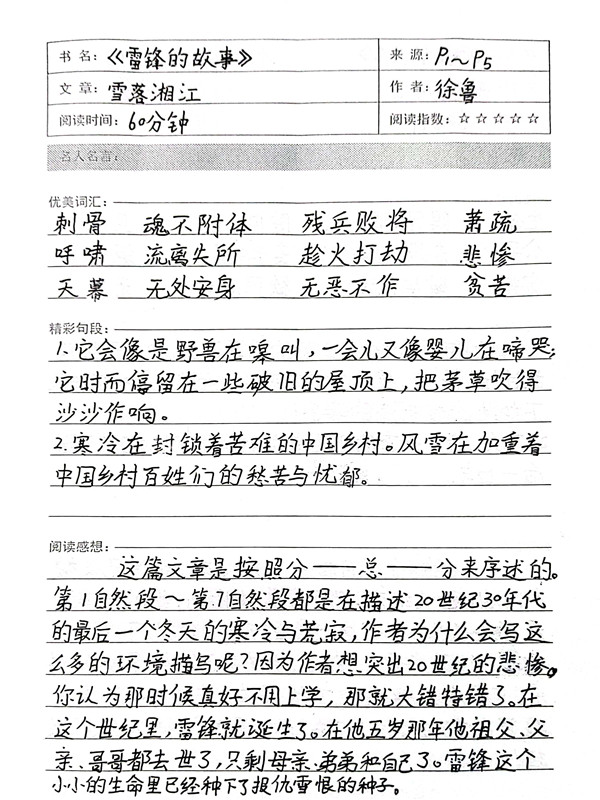 书 名：《雷锋的故事》 来 源：P1～P5
文 章：雪落湘江 作 者：徐鲁
阅读时间：60分钟 阅读指数：☆☆☆☆☆
名人名言：
优美词汇：
刺骨 魂不附体 残兵败将 萧疏
呼啸 流离失所 趁火打劫 悲惨
天幕 无处安身 无恶不作 贫苦
精彩句段：
1.它会像是野兽在嗥叫，一会儿又像婴儿在啼哭；
它时而停留在一些破旧的屋顶上，把茅草吹得
沙沙作响。
2.寒冷在封锁着苦难的中国乡村。风雪在加重着
中国乡村百姓们的愁苦与忧郁。
阅读感想：
这篇文章是按照分——总——分来序述的。
第1自然段～第7自然段都是在描述20世纪30年代
的最后一个冬天的寒冷与荒寂，作者为什么会写这
么多的环境描写呢？因为作者想突出20世纪的悲惨。
你认为那时候真好不用上学，那就大错特错了。在
这个世纪里，雷锋就诞生了。在他五岁那年他祖父、父
亲、哥哥都去世了，只剩母亲、弟弟和自己了。雷锋这个
小小的生命里已经种下了报仇雪恨的种子。